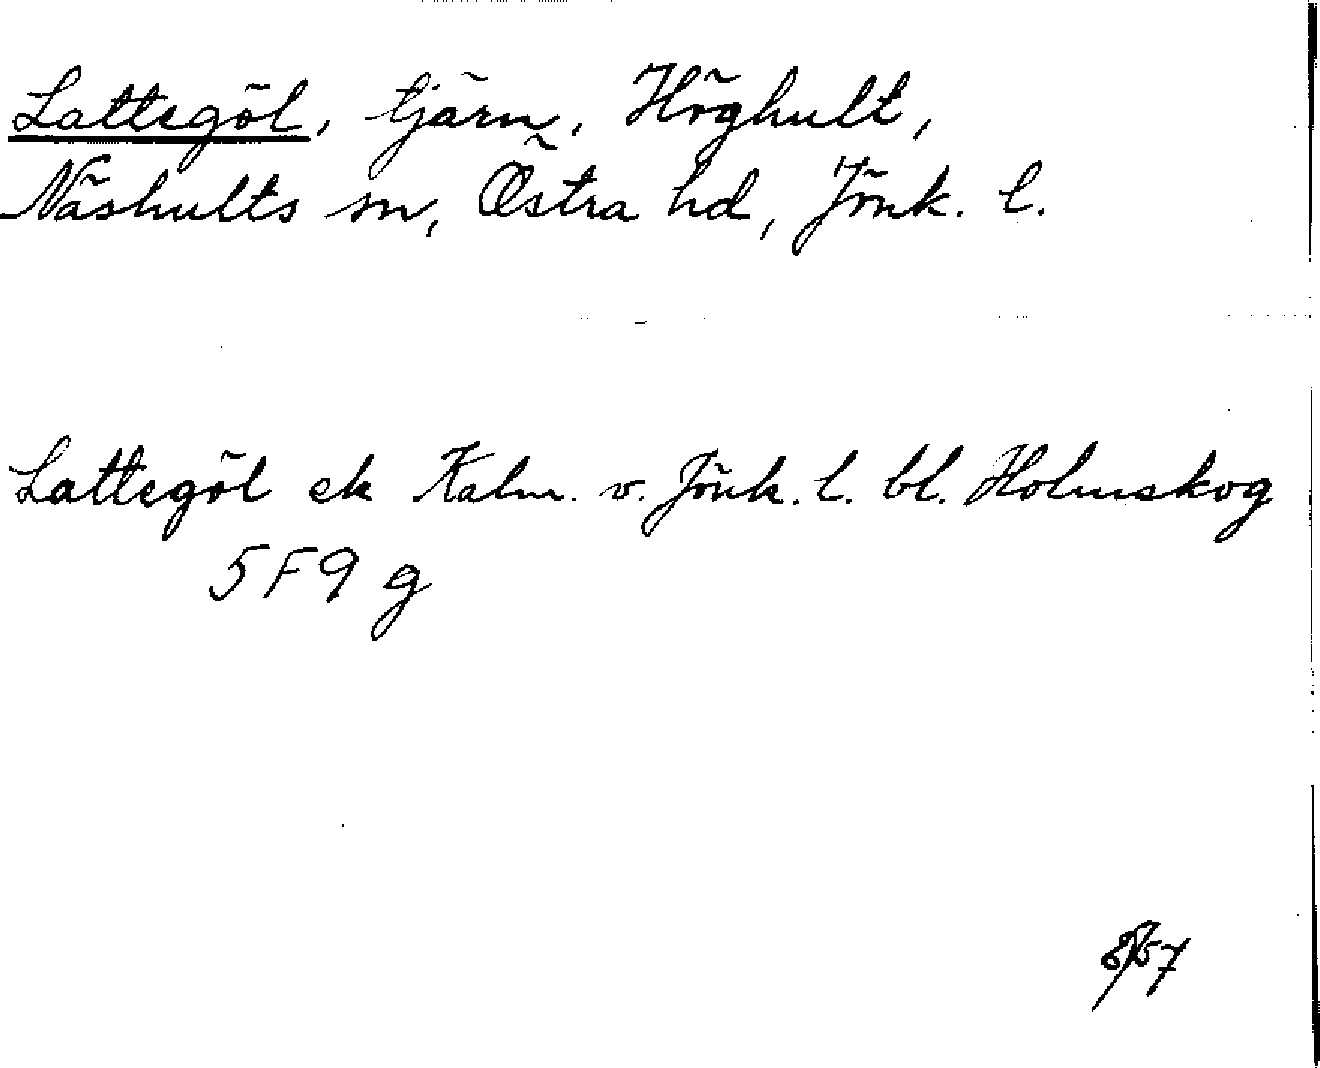 Lattegöl, tjärn, Höghult,
Näshults sn, Östra hd, Jönk. l.
Lattegöl ek Kalm. v. Jönk. l. bl. Holmskog
5F9 g